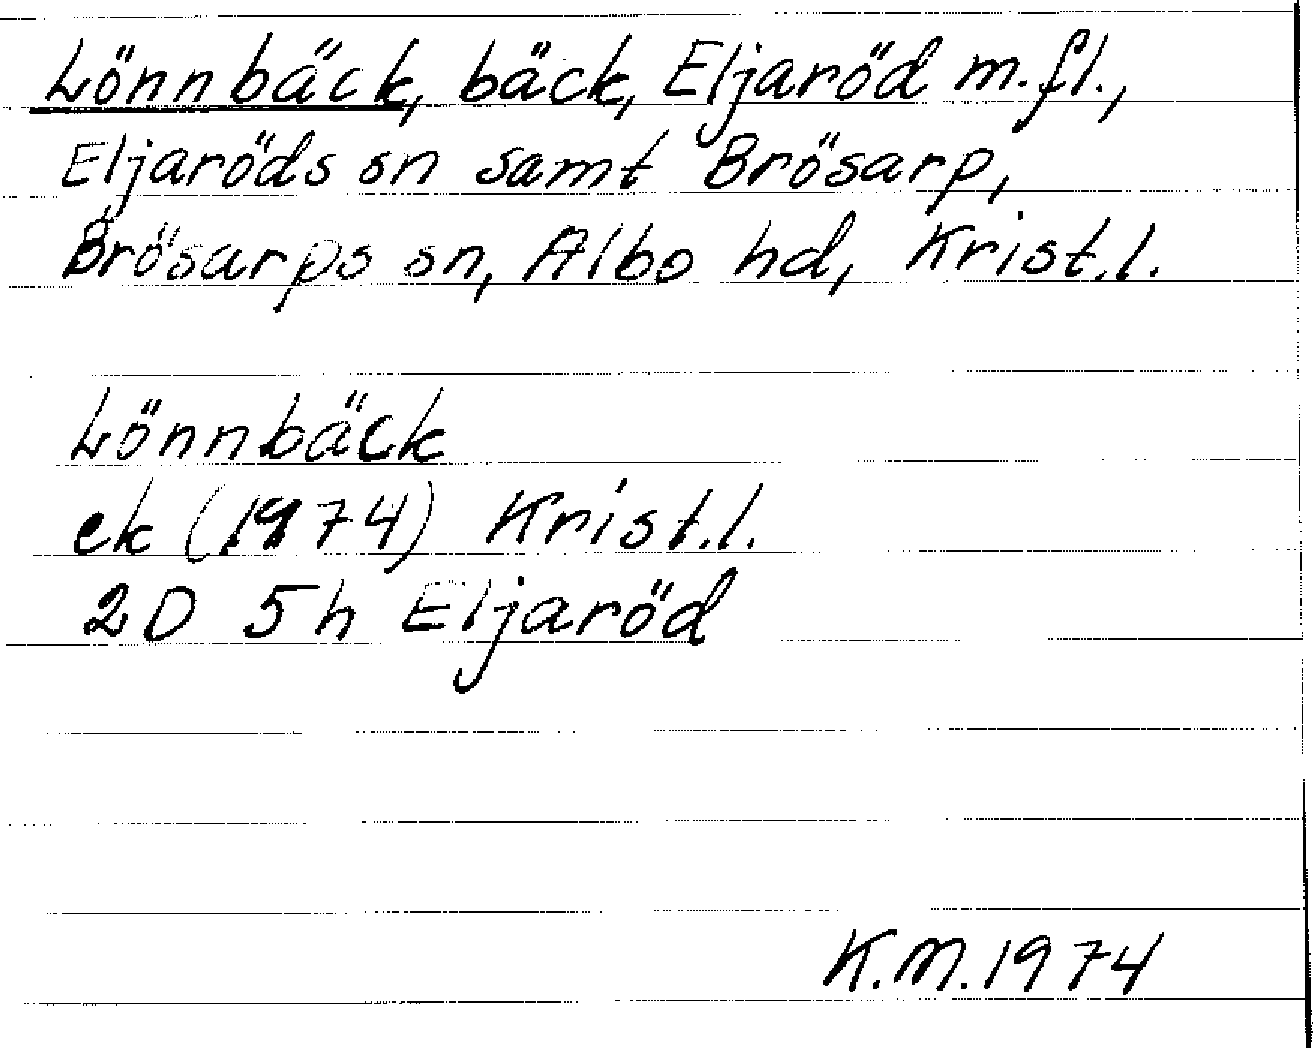 Lönnbäck, bäck, Eljaröd m.fl.,
Eljaröds sn samt Brösarp,
Brösarps sn, Albo hd, Krist.l.
Lönnbäck
ek (1974) Krist.l.
2D 5h Eljaröd
K.M. 1974